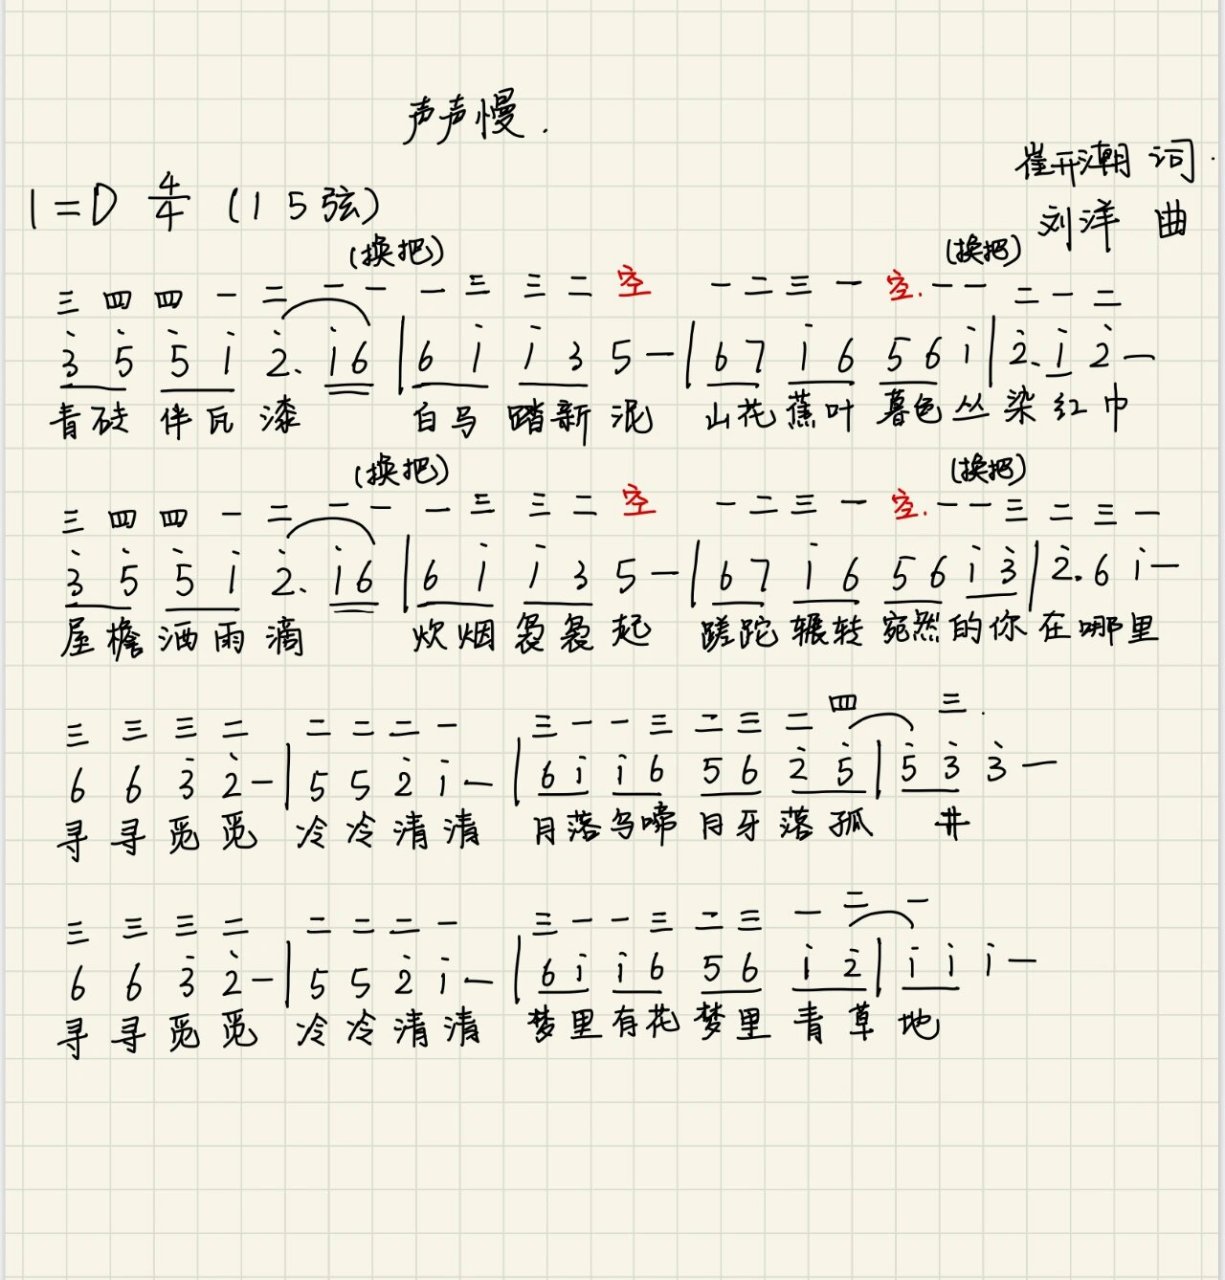 声声慢.
崔开潮 词.
1=D 4/4 (1 5弦)
刘洋 曲
(换把) (换把)
三 四 四 一 二 一 一 一 三 三 二 空 一 二 三 一 空. 一 一 二 一 二
3̇ 5̇ 5̇ 1̇ 2̇. 1̇6 | 6 1̇ 1̇ 3 5 — | 6 7 1̇ 6 5 6 1̇ | 2̇. 1̇ 2̇ —
青砖 伴瓦 漆 白马 踏新 泥 山花 蕉叶 暮色 丛 染 红 巾
(换把) (换把)
三 四 四 一 二 一 一 一 三 三 二 空 一 二 三 一 空. 一 一 三 二 三 一
3̇ 5̇ 5̇ 1̇ 2̇. 1̇6 | 6 1̇ 1̇ 3 5 — | 6 7 1̇ 6 5 6 1̇ 3̇ | 2̇. 6 1̇ —
屋檐 洒雨 滴 炊烟 袅袅 起 蹉跎 辗转 宛然 的你 在 哪 里
三 三 三 二 二 二 二 一 三 一 一 三 二 三 二 四 三.
6 6 3̇ 2̇ — | 5 5 2̇ 1̇ — | 6 1̇ 1̇ 6 5 6 2̇ 5̇ | 5̇ 3̇ 3̇ —
寻 寻 觅 觅 冷 冷 清 清 月落乌啼 月牙 落 孤 井
三 三 三 二 二 二 二 一 三 一 一 三 二 三 一 二 一
6 6 3̇ 2̇ — | 5 5 2̇ 1̇ — | 6 1̇ 1̇ 6 5 6 1̇ 2̇ | 1̇ 1̇ 1̇ —
寻 寻 觅 觅 冷 冷 清 清 梦里有花 梦里 青 草 地